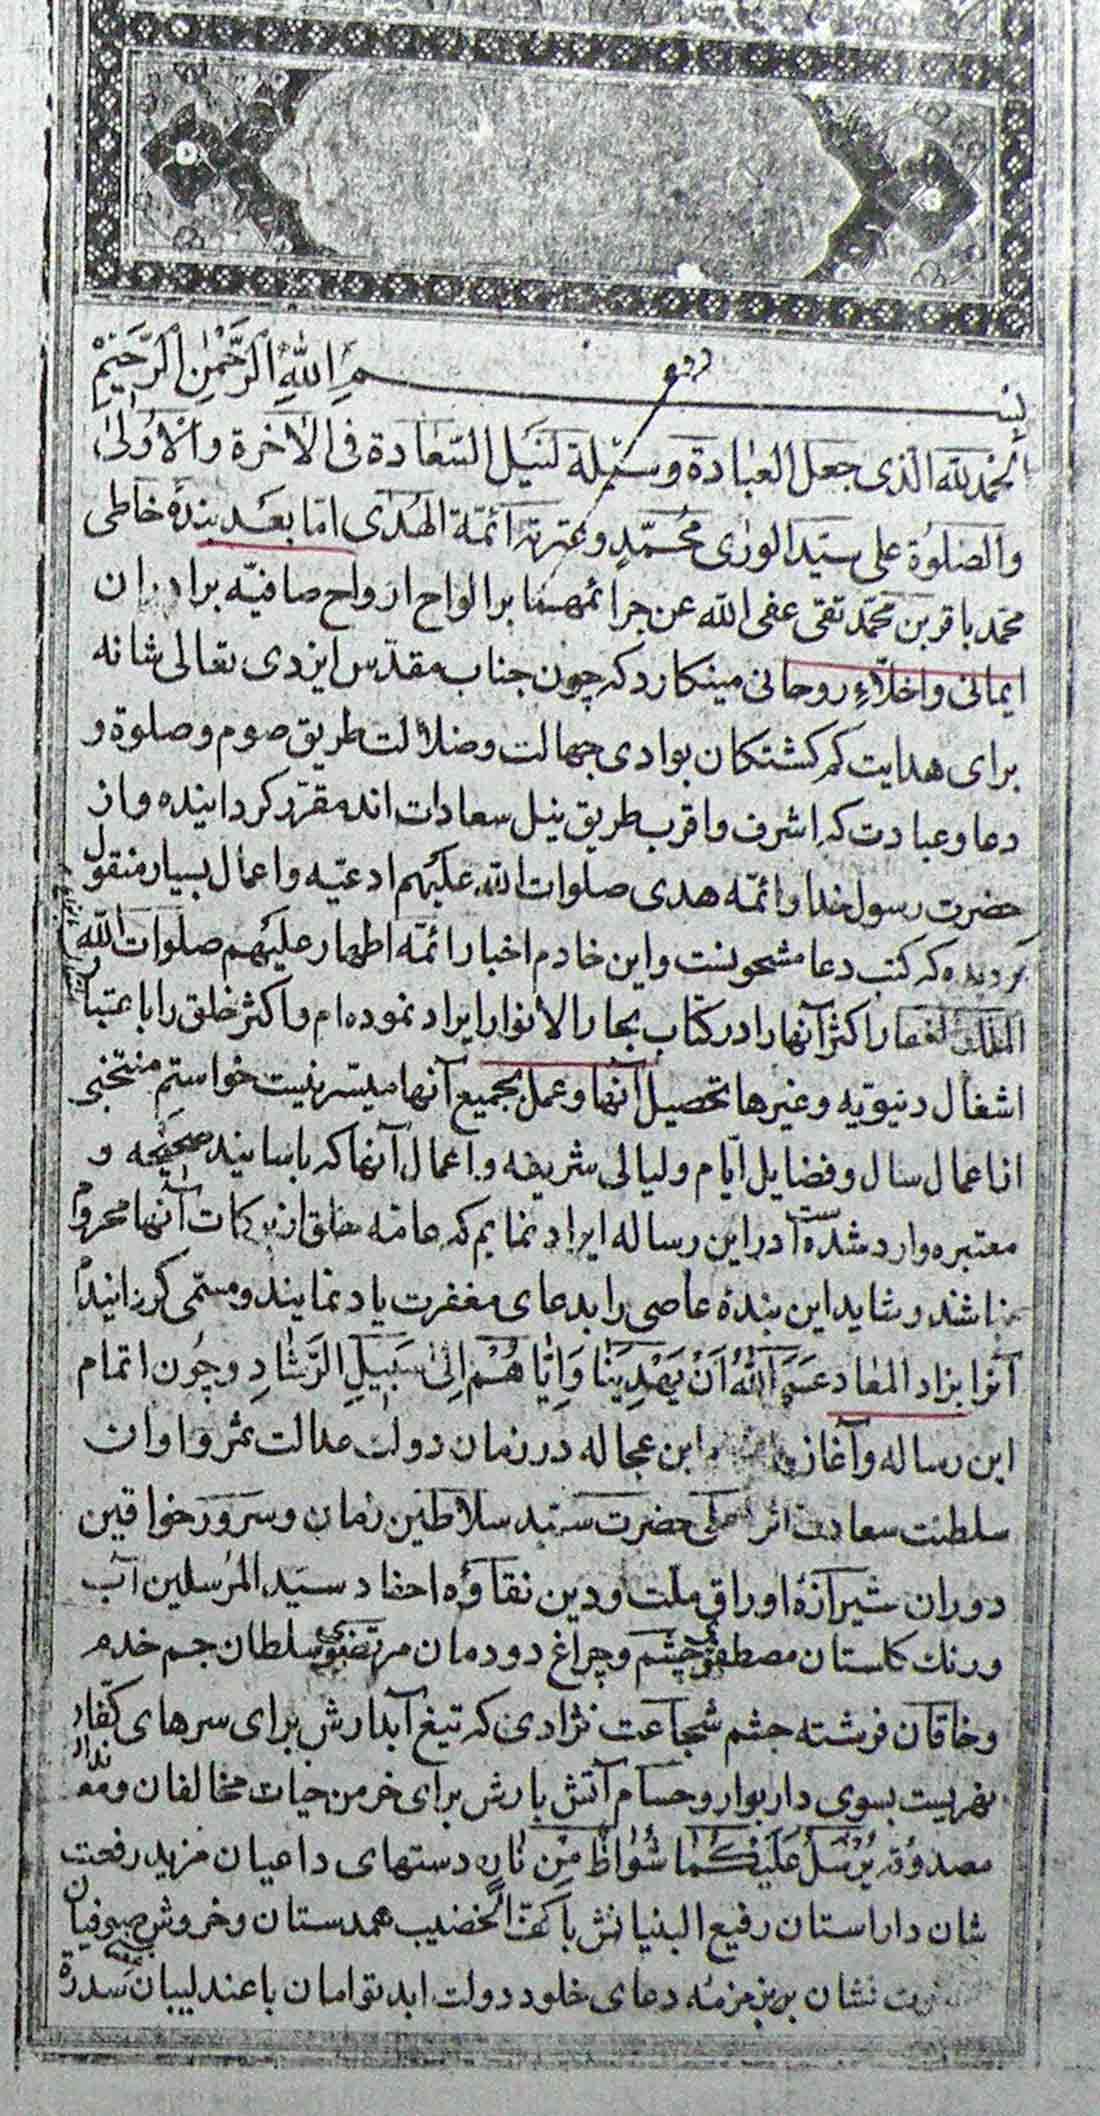 بسم الله الرحمن الرحیم
الحمد لله الذی جعل العبادة وسیلة لنیل السّعادة فی الاخرة والاولی
والصلوة علی سیّد الوری محمّدٍ وعترته ائمّة الهدی امّا بعد بندۀ خاطی
محمد باقر بن محمّد تقی عفی الله عن جرائمهما بر الواح ارواح صافیّه برادران
ایمانی واخلّاءِ روحانی مینکارد که چون جناب مقدّس ایزدی تعالی شانه
برای هدایت کم کشتکان بوادی جهالت وضلالت طریق صوم وصلوة و
دعا وعبادت که اشرف واقرب طریق نیل سعادات اند مقرّر کردانیده واز
حضرت رسول خدا وائمّه هدی صلوات الله علیهم ادعیّه واعمال بسیار منقول
کردیده که کتب دعا مشحونست واین خادم اخبار ائمّه اطهار علیهم صلوات الله
الملک الغفار اکثر آنها را در کتاب بحار الانوار ایراد نموده ام واکثر خلق را باعتبار
اشغال دنیویّه وغیرها تحصیل آنها وعمل بجمیع آنها میسّر نیست خواستم منتخبی
از اعمال سال وفضایل ایّام ولیالی شریفه واعمال آنها که باسانید صحیحه و
معتبره وارد شده است در این رساله ایراد نمایم که عامّه خلق از برکات آنها محروم
نباشند وشاید این بندۀ عاصی را بدعای مغفرت یاد نمایند ومسمّی کردانیدم
آنرا بزاد المعاد عسی اللهُ اَنْ یَهْدِیَنا وَاِیّاهُمْ اِلی سَبیلِ الرَّشادِ وچون اتمام
این رساله وآغاز این عجاله در زمان دولت عدالت ثمر واوان
سلطنت سعادت اثر اعلی حضرت سیّد سلاطین زمان وسرور خواقین
دوران شیرازۀ اوراق ملّت ودین نقاوۀ احفاد سیّد المرسلین آب
ورنک کلستان مصطفوی چشم وچراغ دودمان مرتضوی سلطان جم خدم
وخاقان فرشته حشم شجاعت نژادی که تیغ آبدارش برای سرهای کفّار
نهریست بسوی دار بوار وحسام آتش بارش برای خرمن حیات مخالفان ومعاندان
مصدوقه یُرْسَلُ عَلَیْکُما شُواظٌ مِنْ نارٍ دستهای داعیان مزید رفعت
شان دار استان رفیع البنیانش با کفّ الخضیب همدستان وخروش صوفیان
نشان بزمزمه دعای خلود دولت ابد توامان با عندلیبان سدرة